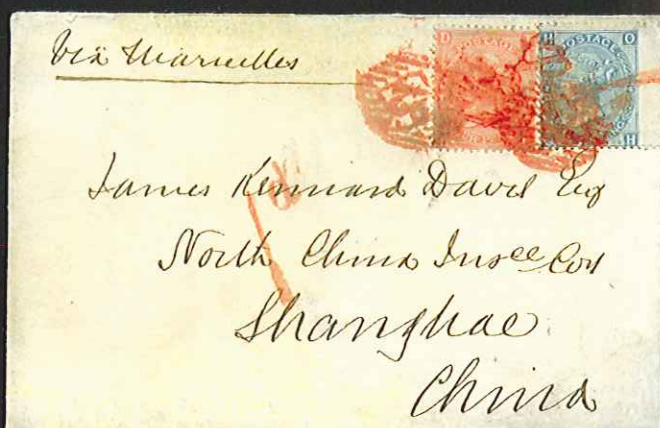 Via Marseilles
D POSTAGE
H POSTAGE O
H
James Kennard Davis Esq
North China Insce Coy
Shanghae
China